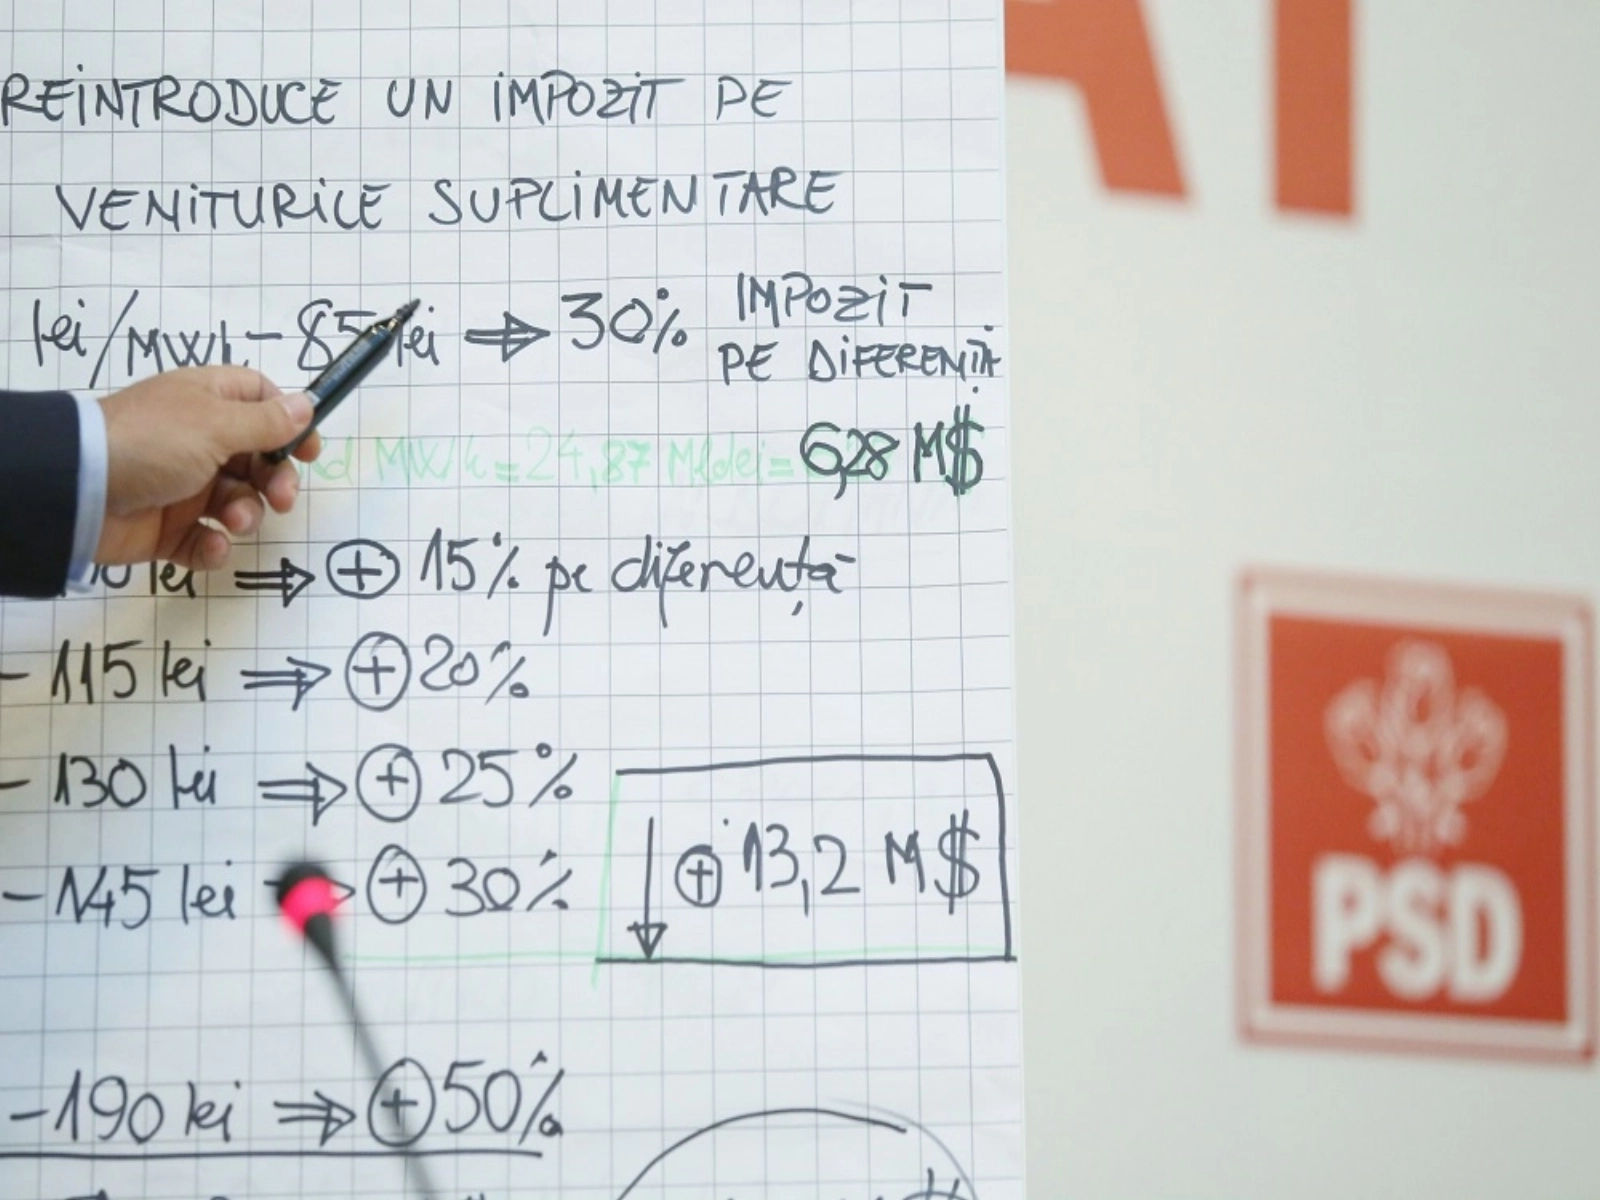 REINTRODUCE UN IMPOZIT PE
VENITURILE SUPLIMENTARE
lei/MWh - 85 lei ⇒ 30% IMPOZIT
PE DIFERENȚĂ
MW/h = 24,87 Mldei = 6,28 M$
lei ⇒ ⊕ 15% pe diferență
- 115 lei ⇒ ⊕ 20%
- 130 lei ⇒ ⊕ 25%
- 145 lei ⊕ 30%
↓ ⊕ 13,2 M$
- 190 lei ⇒ ⊕ 50%
AT
PSD